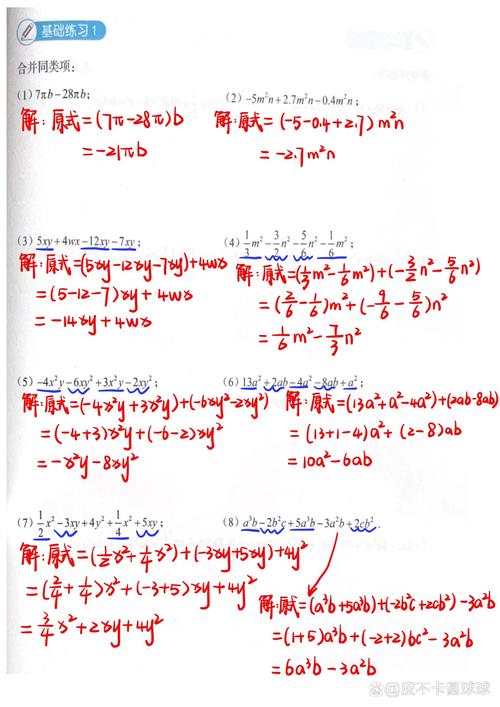 基础练习1
合并同类项:
(1) 7πb-28πb;
解:原式=(7π-28π)b
=-21πb
(2) -5m²n+2.7m²n-0.4m²n;
解:原式=(-5-0.4+2.7)m²n
=-2.7m²n
(3) 5xy+4wx-12xy-7xy;
解:原式=(5xy-12xy-7xy)+4wx
=(5-12-7)xy+4wx
=-14xy+4wx
(4) 1/3m²-3/2n²-5/6n²-1/6m²;
解:原式=(1/3m²-1/6m²)+(-3/2n²-5/6n²)
=(2/6-1/6)m²+(-9/6-5/6)n²
=1/6m²-7/3n²
(5) -4x²y-6xy²+3x²y-2xy²;
解:原式=(-4x²y+3x²y)+(-6xy²-2xy²)
=(-4+3)x²y+(-6-2)xy²
=-x²y-8xy²
(6) 13a²+2ab-4a²-8ab+a²;
解:原式=(13a²+a²-4a²)+(2ab-8ab)
=(13+1-4)a²+(2-8)ab
=10a²-6ab
(7) 1/2x²-3xy+4y²+1/4x²+5xy;
解:原式=(1/2x²+1/4x²)+(-3xy+5xy)+4y²
=(2/4+1/4)x²+(-3+5)xy+4y²
=3/4x²+2xy+4y²
(8) a³b-2b²c+5a³b-3a²b+2cb².
解:原式=(a³b+5a³b)+(-2b²c+2cb²)-3a²b
=(1+5)a³b+(-2+2)bc²-3a²b
=6a³b-3a²b
知乎 @皮不卡圆球球